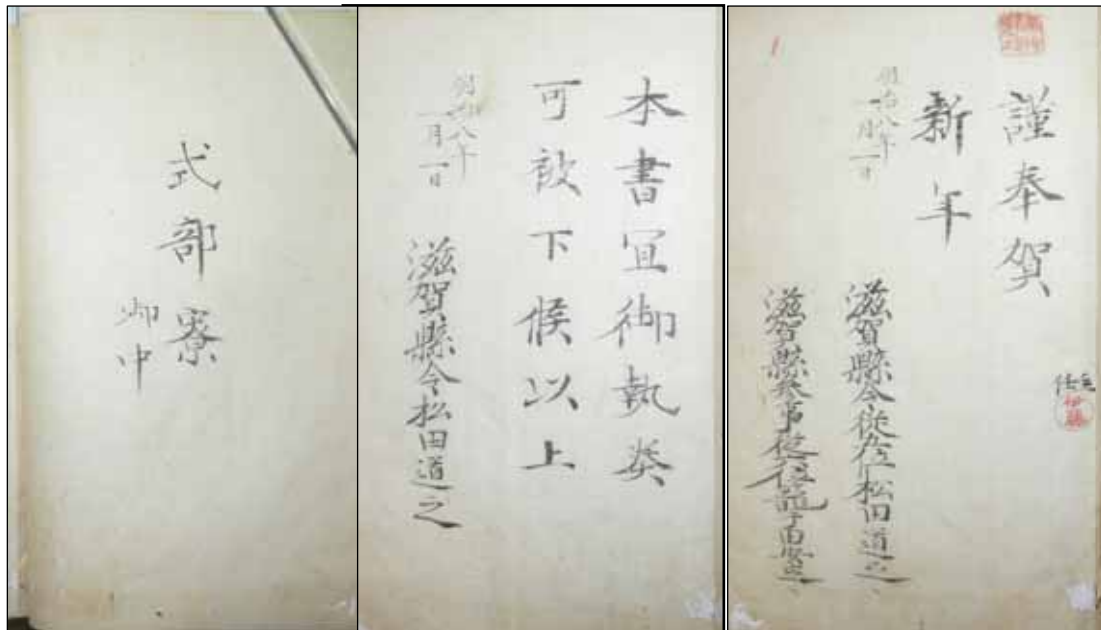 謹奉賀
新年
明治八年
一月一日
滋賀縣令従五位松田道之
滋賀縣参事
主任
伊藤
1
本書宜御執奏
可被下候以上
明治八年
一月一日
滋賀縣令松田道之
式部寮
御中